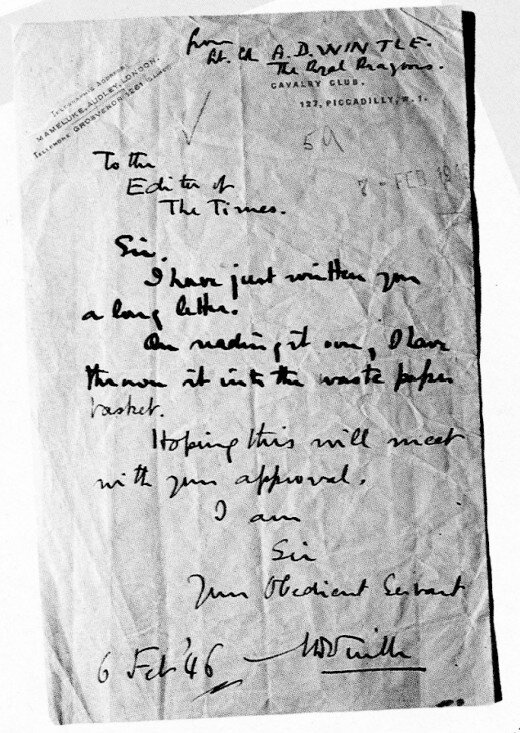 from
Lt. Col A.D. WINTLE.
The Royal Dragoons.
CAVALRY CLUB,
127, PICCADILLY, W.1.
MAMELUKE, AUDLEY, LONDON.
TELEPHONE GROSVENOR 1261
59
7 - FEB 194
To the
Editor of
The Times.
Sir,
I have just written you
a long letter.
On reading it over, I have
thrown it into the waste paper
basket.
Hoping this will meet
with your approval,
I am
Sir
Your Obedient Servant
6 Feb '46
ADWintle